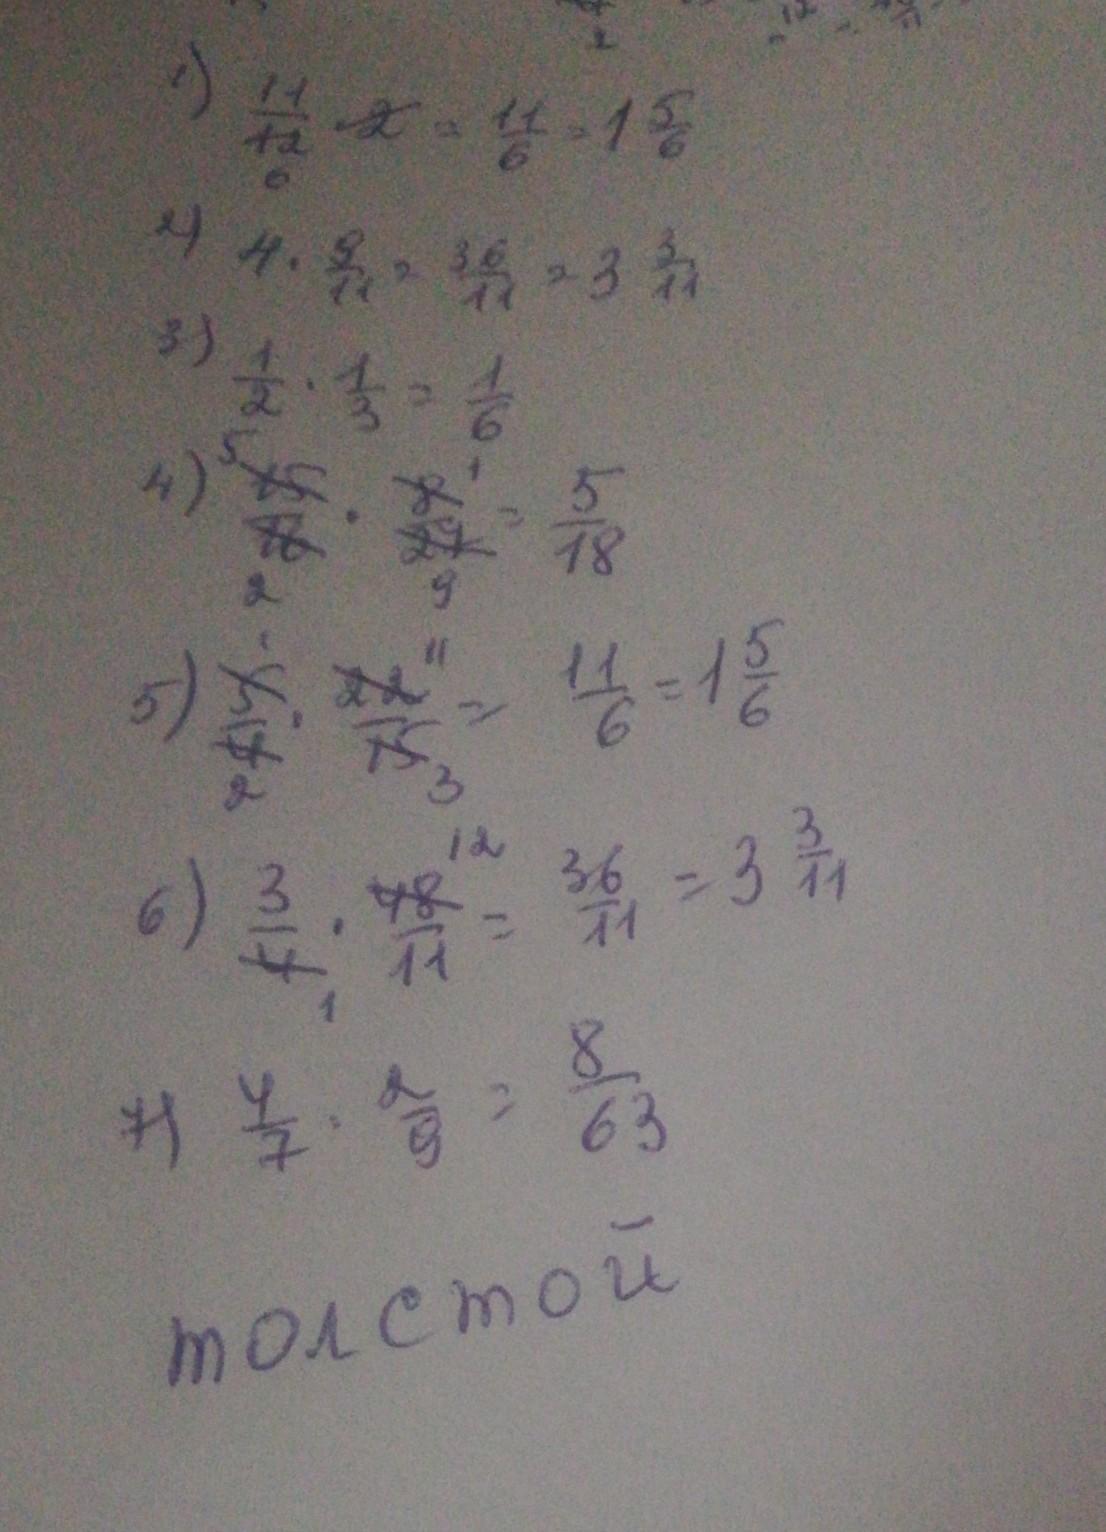 1) 11/12 · 2 = 11/6 = 1 5/6
6
2) 4 · 9/11 = 36/11 = 3 3/11
3) 1/2 · 1/3 = 1/6
5 1
4) 15/16 · 8/27 = 5/18
2 9
1 11
5) 5/4 · 22/15 = 11/6 = 1 5/6
2 3
12
6) 3/4 · 48/11 = 36/11 = 3 3/11
1
7) 4/7 · 2/9 = 8/63
толстой